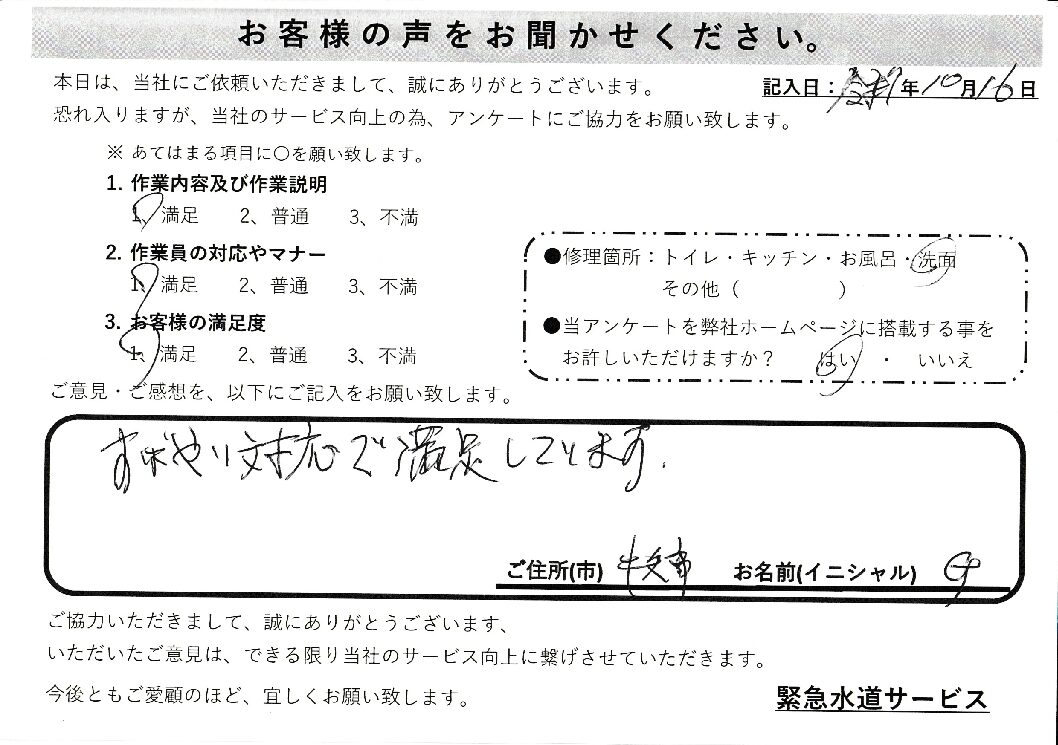 お客様の声をお聞かせください。
本日は、当社にご依頼いただきまして、誠にありがとうございます。
記入日：令和7年10月16日
恐れ入りますが、当社のサービス向上の為、アンケートにご協力をお願い致します。
※ あてはまる項目に〇を願い致します。
1. 作業内容及び作業説明
1、満足 2、普通 3、不満
2. 作業員の対応やマナー
1、満足 2、普通 3、不満
3. お客様の満足度
1、満足 2、普通 3、不満
●修理箇所：トイレ・キッチン・お風呂・洗面
その他（ ）
●当アンケートを弊社ホームページに搭載する事を
お許しいただけますか？ はい ・ いいえ
ご意見・ご感想を、以下にご記入をお願い致します。
すばやい対応で満足しています.
ご住所(市) お名前(イニシャル)
ご協力いただきまして、誠にありがとうございます、
いただいたご意見は、できる限り当社のサービス向上に繋げさせていただきます。
今後ともご愛顧のほど、宜しくお願い致します。
緊急水道サービス